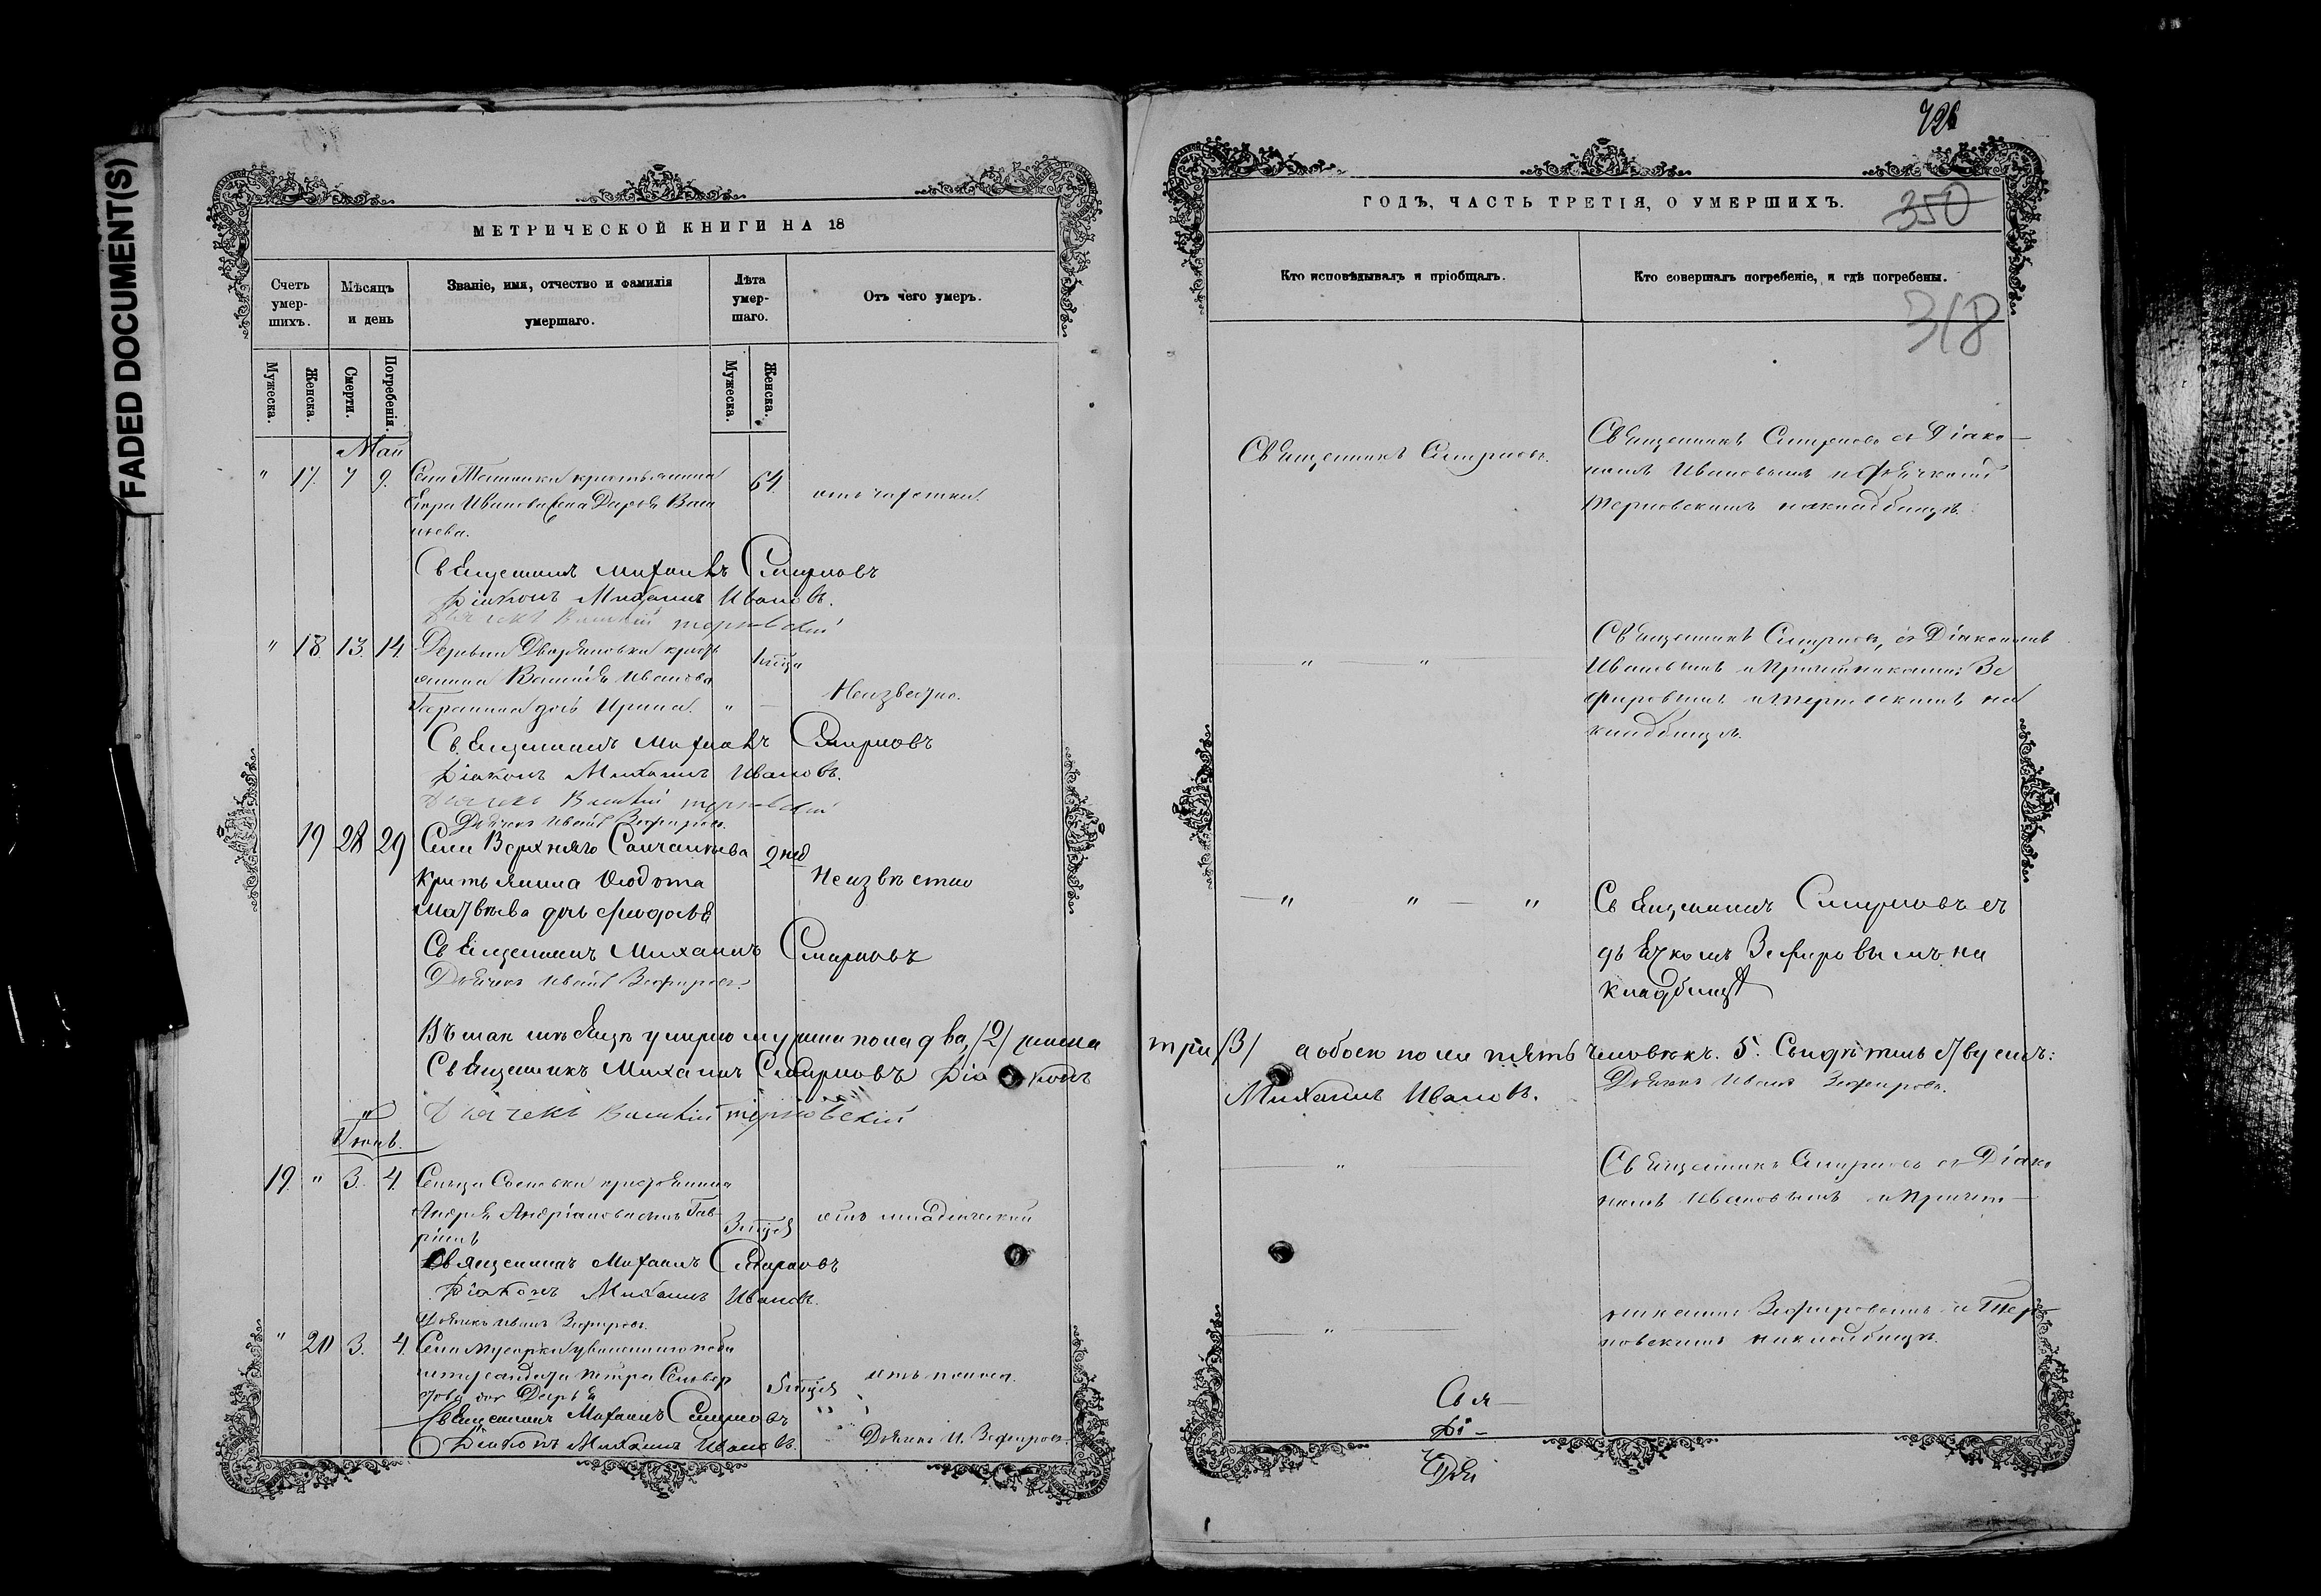 FADED DOCUMENT(S)
МЕТРИЧЕСКОЙ КНИГИ НА 18
Счетъ умер-шихъ.
Мѣсяцъ и день
Званіе, имя, отчество и фамилія умершаго.
Лѣта умер-шаго.
Отъ чего умеръ.
Мужеска.
Женска.
Смерти.
Погребенія.
Мужеска.
Женска.
Май
" 17. 7 9. Села крестьянина 64.
Иванова жена Дарья Васи
льева.
отъ чахотки.
Священникъ Михаилъ Смирновъ
Діаконъ Михаилъ Ивановъ.
Дьячекъ Василій Терновскій
" 18. 13. 14. Деревни Дворяновки кресть
янина Василія Иванова
дочь Ирина. "
Неизвестно.
Священникъ Михаилъ Смирновъ
Діаконъ Михаилъ Ивановъ.
Дьячекъ Василій Терновскій
Дьячекъ Иванъ Зефировъ.
19 28 29 Села Верхняго 2 нед
крестьянина Ѳедота Неизвѣстно
Матвѣева дочь Ѳеодосья
Священникъ Михаилъ Смирновъ
Дьячекъ Иванъ Зефировъ.
Въ маѣ мѣсяцѣ умерло мужеска пола два /2/ женска
Священникъ Михаилъ Смирновъ Діаконъ
Дьячекъ Василій Терновскій
Іюнь.
19. " 3. 4. Сельца Сосновки крестьянина
Андрея Андріанова сынъ Гав-
ріилъ
отъ младенческой
Священникъ Михаилъ Смирновъ
Діаконъ Михаилъ Ивановъ.
Дьячекъ Иванъ Зефировъ.
" 20 3. 4. Села уволеннаго
Петра
дочь Дарья
отъ поноса.
Священникъ Михаилъ Смирновъ
Діаконъ Михаилъ Ивановъ.
Дьячекъ И. Зефировъ.
350
ГОДЪ, ЧАСТЬ ТРЕТІЯ, О УМЕРШИХЪ.
Кто исповѣдывалъ и пріобщалъ.
Кто совершалъ погребеніе, и гдѣ погребены.
318
Священникъ Смирновъ.
Священникъ Смирновъ съ Діако-
номъ Ивановымъ и дьячкомъ
Терновскимъ на кладбищѣ.
" "
Священникъ Смирновъ, съ Діакономъ
Ивановымъ и Причетниками: Зе
фировымъ и Терновскимъ на
кладбищѣ.
" " "
Священникъ Смирновъ съ
дьячкомъ Зефировымъ на
кладбищѣ
три /3/ а обоего пола пять человѣкъ. 5. Свидѣтельствуемъ:
Михаилъ Ивановъ.
Дьячекъ Иванъ Зефировъ.
"
Священникъ Смирновъ съ Діако
номъ Ивановымъ и Причет-
"
никами Зефировымъ и Тер
новскимъ на кладбищѣ.
Свя-
Ді-
Дья